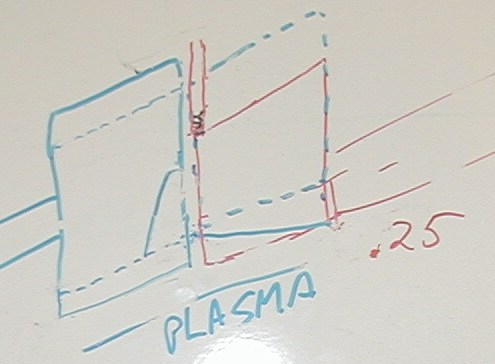 .25
PLASMA